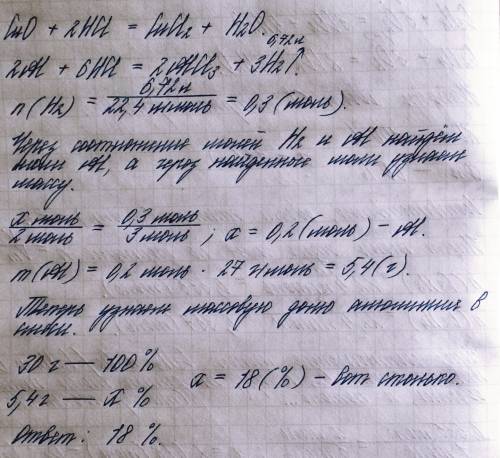 CuO + 2HCl = CuCl₂ + H₂O.
6,72л
2Al + 6HCl = 2AlCl₃ + 3H₂↑.
n(H₂) = 6,72л / 22,4 л/моль = 0,3 (моль).
Через соотношение молей H₂ и Al найдём
моли Al, а через найденные моли узнаем
массу.
x моль / 2 моль = 0,3 моль / 3 моль ; x = 0,2 (моль) – Al.
m(Al) = 0,2 моль · 27 г/моль = 5,4 (г).
Теперь узнаем массовую долю алюминия в
смеси.
30 г — 100 %
5,4 г — x %
x = 18 (%) – вот столько.
Ответ: 18 %.